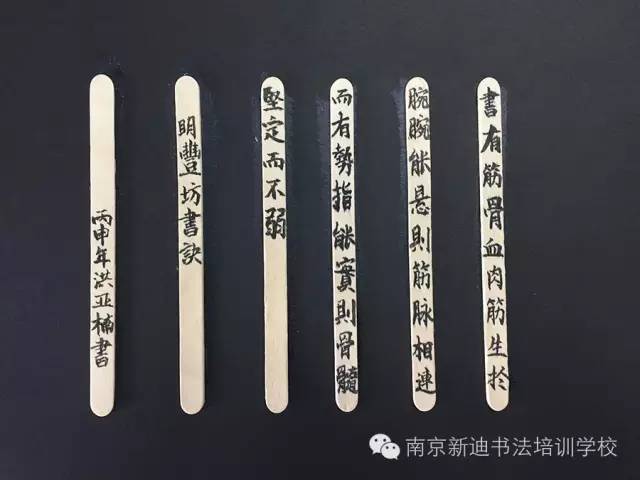 書有筋骨血肉筋生於
腕腕能悬則筋脉相連
而有勢指能實則骨髓
堅定而不弱
明豐坊書訣
丙申年洪亚楠書
南京新迪书法培训学校